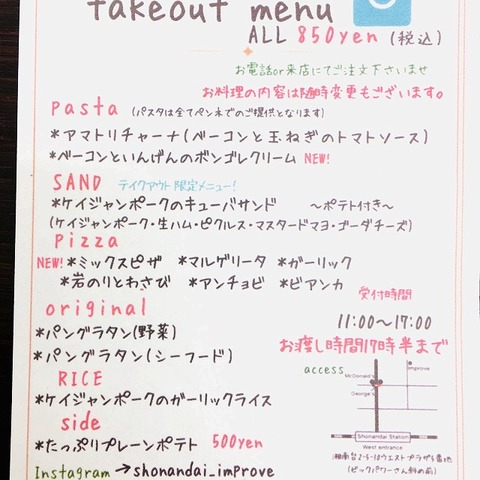 takeout menu
ALL 850yen (税込)
お電話or来店にてご注文下さいませ
お料理の内容は随時変更もございます。
pasta (パスタは全てペンネでのご提供となります)
*アマトリチャーナ(ベーコンと玉ねぎのトマトソース)
*ベーコンといんげんのボンゴレクリーム NEW!
SAND テイクアウト限定メニュー!
*ケイジャンポークのキューバサンド ～ポテト付き～
(ケイジャンポーク・生ハム・ピクルス・マスタードマヨ・ゴーダチーズ)
pizza
NEW! *ミックスピザ *マルゲリータ *ガーリック
*岩のりとわさび *アンチョビ *ビアンカ
受付時間
original
11:00～17:00
*パングラタン(野菜)
お渡し時間17時半まで
*パングラタン(シーフード)
access
improve
McDonald's
RICE
George's
*ケイジャンポークのガーリックライス
side
Shonandai Station
West entrance
*たっぷりプレーンポテト 500yen
(湘南台2-5-18ウエストプラザ5番地
(ビックパワーさん斜め前)
Instagram →shonandai_improve